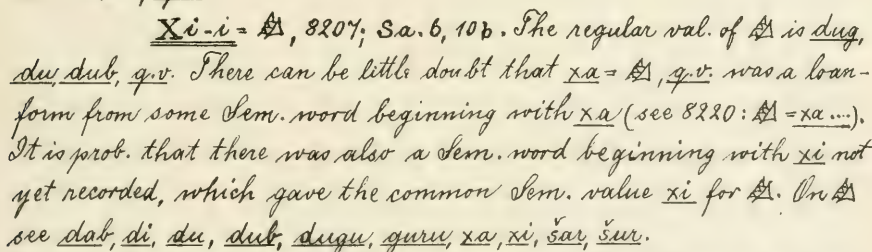 Xi-i = 𒄭, 8207; Sa. 6, 10b. The regular val. of 𒄭 is dug,
du, dub, q.v. There can be little doubt that xa = 𒄭, q.v. was a loan-
form from some Sem. word beginning with xa (see 8220: 𒄭 = xa ....).
It is prob. that there was also a Sem. word beginning with xi not
yet recorded, which gave the common Sem. value xi for 𒄭. On 𒄭
see dab, di, du, dub, dugu, guru, xa, xi, šar, šur.